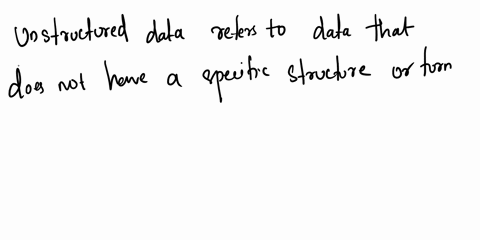 Unstructured data refers to data that
does not have a specific structure or form